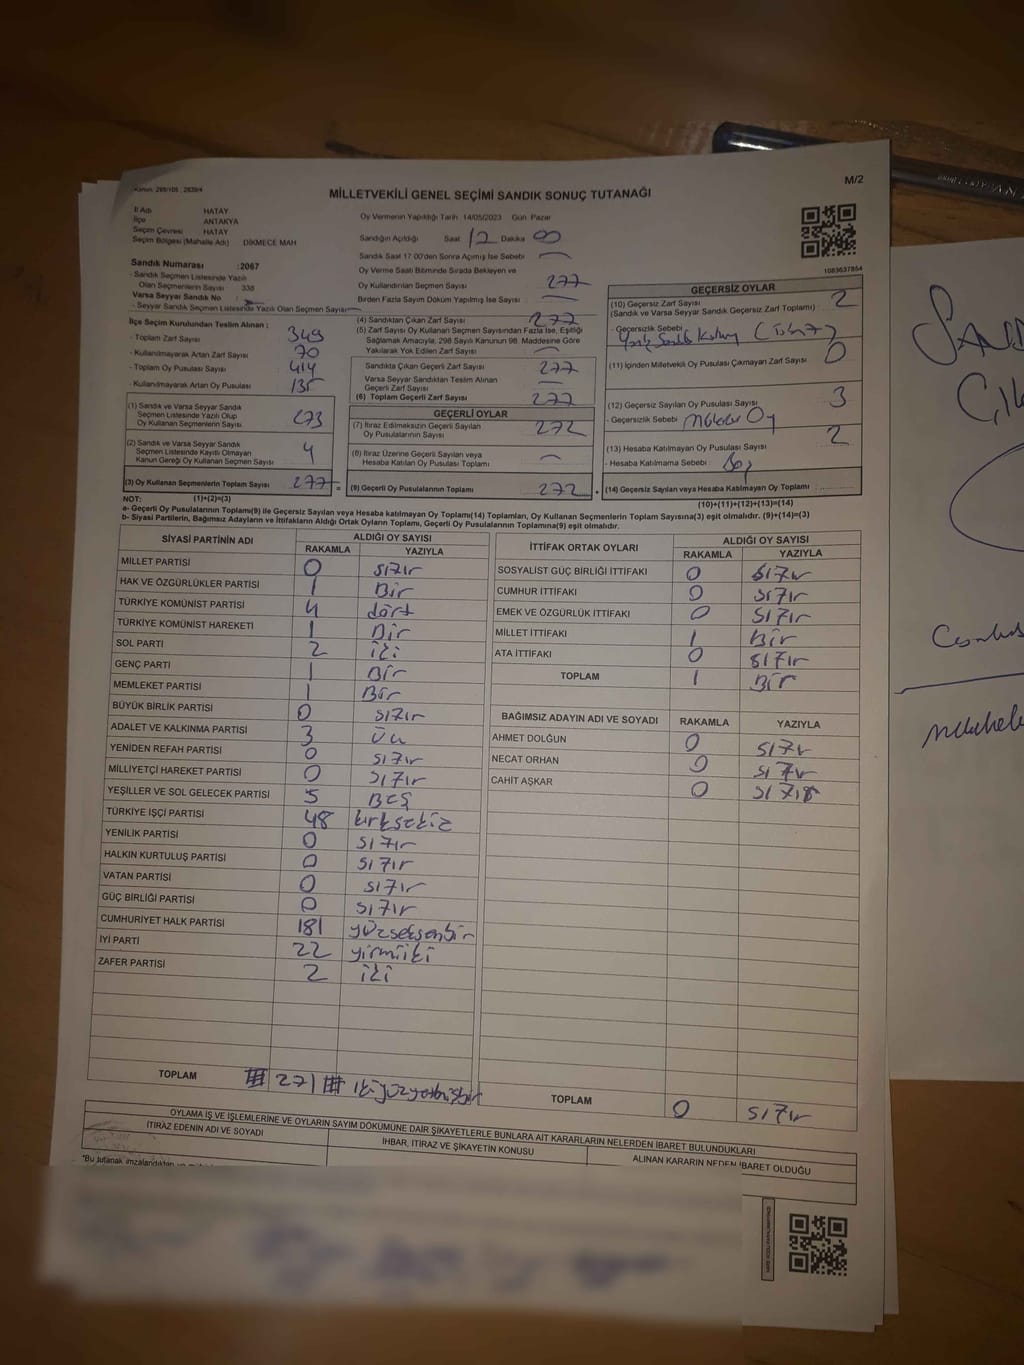 Kanun: 298/105 ; 2839/4
M/2
MİLLETVEKİLİ GENEL SEÇİMİ SANDIK SONUÇ TUTANAĞI
İl Adı HATAY
İlçe ANTAKYA
Seçim Çevresi HATAY
Seçim Bölgesi (Mahalle Adı) DİKMECE MAH
Oy Vermenin Yapıldığı Tarih 14/05/2023 Gün Pazar
Sandığın Açıldığı Saat 12 Dakika 00
Sandık Saat 17.00'den Sonra Açılmış İse Sebebi
Oy Verme Saati Bitiminde Sırada Bekleyen ve
Oy Kullandırılan Seçmen Sayısı 277
Birden Fazla Sayım Döküm Yapılmış İse Sayısı
1083637854
Sandık Numarası :2067
- Sandık Seçmen Listesinde Yazılı
Olan Seçmenlerin Sayısı 338
Varsa Seyyar Sandık No :
- Seyyar Sandık Seçmen Listesinde Yazılı Olan Seçmen Sayısı
İlçe Seçim Kurulundan Teslim Alınan ;
- Toplam Zarf Sayısı 349
- Kullanılmayarak Artan Zarf Sayısı 70
- Toplam Oy Pusulası Sayısı 414
- Kullanılmayarak Artan Oy Pusulası 135
(1) Sandık ve Varsa Seyyar Sandık
Seçmen Listesinde Yazılı Olup
Oy Kullanan Seçmenlerin Sayısı 273
(2) Sandık ve Varsa Seyyar Sandık
Seçmen Listesinde Kayıtlı Olmayan
Kanun Gereği Oy Kullanan Seçmen Sayısı 4
(3) Oy Kullanan Seçmenlerin Toplam Sayısı 277 =
(4) Sandıktan Çıkan Zarf Sayısı 277
(5) Zarf Sayısı Oy Kullanan Seçmen Sayısından Fazla İse, Eşitliği
Sağlamak Amacıyla, 298 Sayılı Kanunun 98. Maddesine Göre
Yakılarak Yok Edilen Zarf Sayısı
Sandıkta Çıkan Geçerli Zarf Sayısı 277
Varsa Seyyar Sandıktan Teslim Alınan
Geçerli Zarf Sayısı
(6) Toplam Geçerli Zarf Sayısı 277
GEÇERLİ OYLAR
(7) İtiraz Edilmeksizin Geçerli Sayılan
Oy Pusulalarının Sayısı 272
(8) İtiraz Üzerine Geçerli Sayılan veya
Hesaba Katılan Oy Pusulası Toplamı
(9) Geçerli Oy Pusulalarının Toplamı 272 +
GEÇERSİZ OYLAR
(10) Geçersiz Zarf Sayısı 2
(Sandık ve Varsa Seyyar Sandık Geçersiz Zarf Toplamı) :
- Geçersizlik Sebebi :
(11) İçinden Milletvekili Oy Pusulası Çıkmayan Zarf Sayısı 0
(12) Geçersiz Sayılan Oy Pusulası Sayısı 3
- Geçersizlik Sebebi : Oy
(13) Hesaba Katılmayan Oy Pusulası Sayısı 2
- Hesaba Katılmama Sebebi : Boş
(14) Geçersiz Sayılan veya Hesaba Katılmayan Oy Toplamı :
NOT: (1)+(2)=(3)
(10)+(11)+(12)+(13)=(14)
a- Geçerli Oy Pusulalarının Toplamı(9) ile Geçersiz Sayılan veya Hesaba katılmayan Oy Toplamı(14) Toplamları, Oy Kullanan Seçmenlerin Toplam Sayısına(3) eşit olmalıdır. (9)+(14)=(3)
b- Siyasi Partilerin, Bağımsız Adayların ve İttifakların Aldığı Ortak Oyların Toplamı, Geçerli Oy Pusulalarının Toplamına(9) eşit olmalıdır.
SİYASİ PARTİNİN ADI ALDIĞI OY SAYISI
RAKAMLA YAZIYLA
MİLLET PARTİSİ 0 sıfır
HAK VE ÖZGÜRLÜKLER PARTİSİ 1 Bir
TÜRKİYE KOMÜNİST PARTİSİ 4 dört
TÜRKİYE KOMÜNİST HAREKETİ 1 Bir
SOL PARTİ 2 iki
GENÇ PARTİ 1 Bir
MEMLEKET PARTİSİ 1 Bir
BÜYÜK BİRLİK PARTİSİ 0 sıfır
ADALET VE KALKINMA PARTİSİ 3 üç
YENİDEN REFAH PARTİSİ 0 sıfır
MİLLİYETÇİ HAREKET PARTİSİ 0 sıfır
YEŞİLLER VE SOL GELECEK PARTİSİ 5 Beş
TÜRKİYE İŞÇİ PARTİSİ 48 kırksekiz
YENİLİK PARTİSİ 0 sıfır
HALKIN KURTULUŞ PARTİSİ 0 sıfır
VATAN PARTİSİ 0 sıfır
GÜÇ BİRLİĞİ PARTİSİ 0 sıfır
CUMHURİYET HALK PARTİSİ 181 yüzseksenbir
İYİ PARTİ 22 yirmiiki
ZAFER PARTİSİ 2 iki
TOPLAM # 271 # ikiyüzyetmişbir
İTTİFAK ORTAK OYLARI ALDIĞI OY SAYISI
RAKAMLA YAZIYLA
SOSYALİST GÜÇ BİRLİĞİ İTTİFAKI 0 sıfır
CUMHUR İTTİFAKI 0 sıfır
EMEK VE ÖZGÜRLÜK İTTİFAKI 0 sıfır
MİLLET İTTİFAKI 1 Bir
ATA İTTİFAKI 0 sıfır
TOPLAM 1 Bir
BAĞIMSIZ ADAYIN ADI VE SOYADI RAKAMLA YAZIYLA
AHMET DOLĞUN 0 sıfır
NECAT ORHAN 0 sıfır
CAHİT AŞKAR 0 sıfır
TOPLAM 0 sıfır
OYLAMA İŞ VE İŞLEMLERİNE VE OYLARIN SAYIM DÖKÜMÜNE DAİR ŞİKAYETLERLE BUNLARA AİT KARARLARIN NELERDEN İBARET BULUNDUKLARI
İTİRAZ EDENİN ADI VE SOYADI
İHBAR, İTİRAZ VE ŞİKAYETİN KONUSU
ALINAN KARARIN NEDEN İBARET OLDUĞU
"Bu tutanak